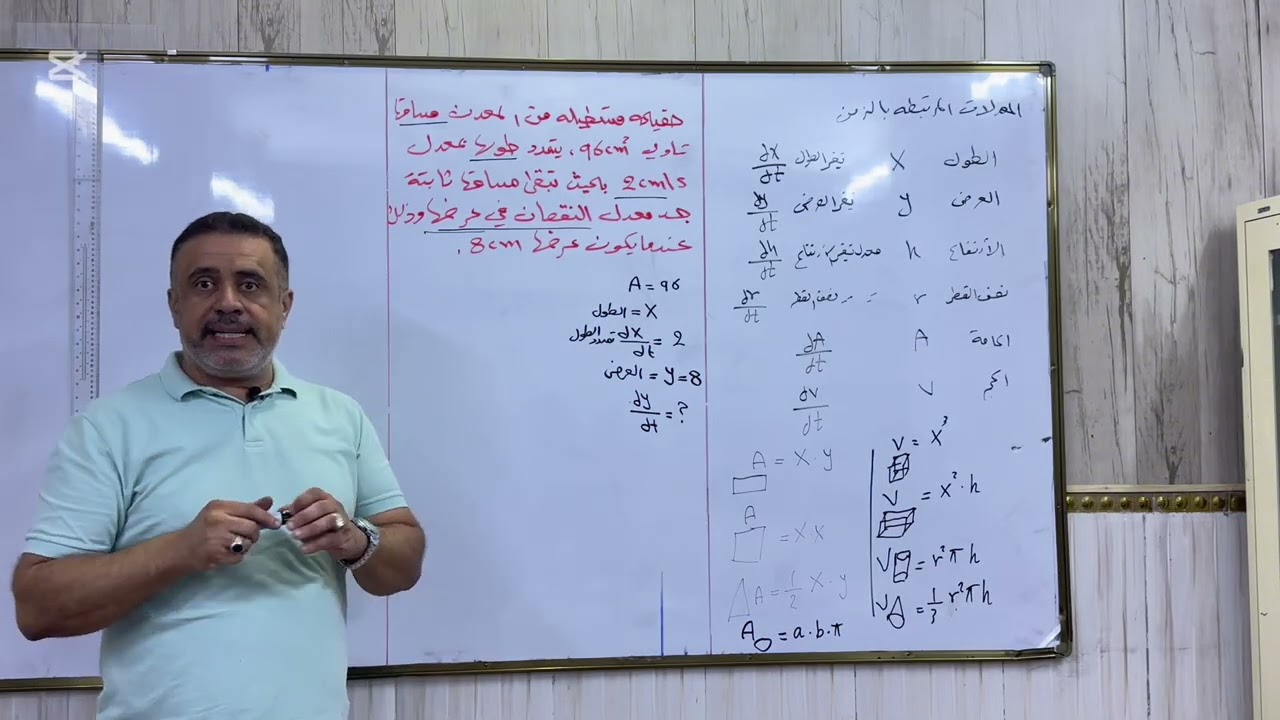 المعدلات المرتبطة بالزمن
الطول X تغير الطول dx/dt
العرض y تغير العرض dy/dt
الأرتفاع h معدل تغير الارتفاع dh/dt
نصف القطر r = = نصف القطر dr/dt
المساحة A dA/dt
الحجم v dv/dt
A = X · y
A = X·X
A = 1/2 X · y
A = a · b · π
V = X³
V = X² · h
V = r² π h
V = 1/3 r² π h
صفيحة مستطيلة من المعدن مساحتها
تساوي 96cm²، يتمدد طولها بمعدل
2cm/s بحيث تبقى مساحتها ثابتة
جد معدل النقصان في عرضها وذلك
عندما يكون عرضها 8cm.
A = 96
X = الطول
dx/dt = 2 تمدد الطول
y = 8 = العرض
dy/dt = ?